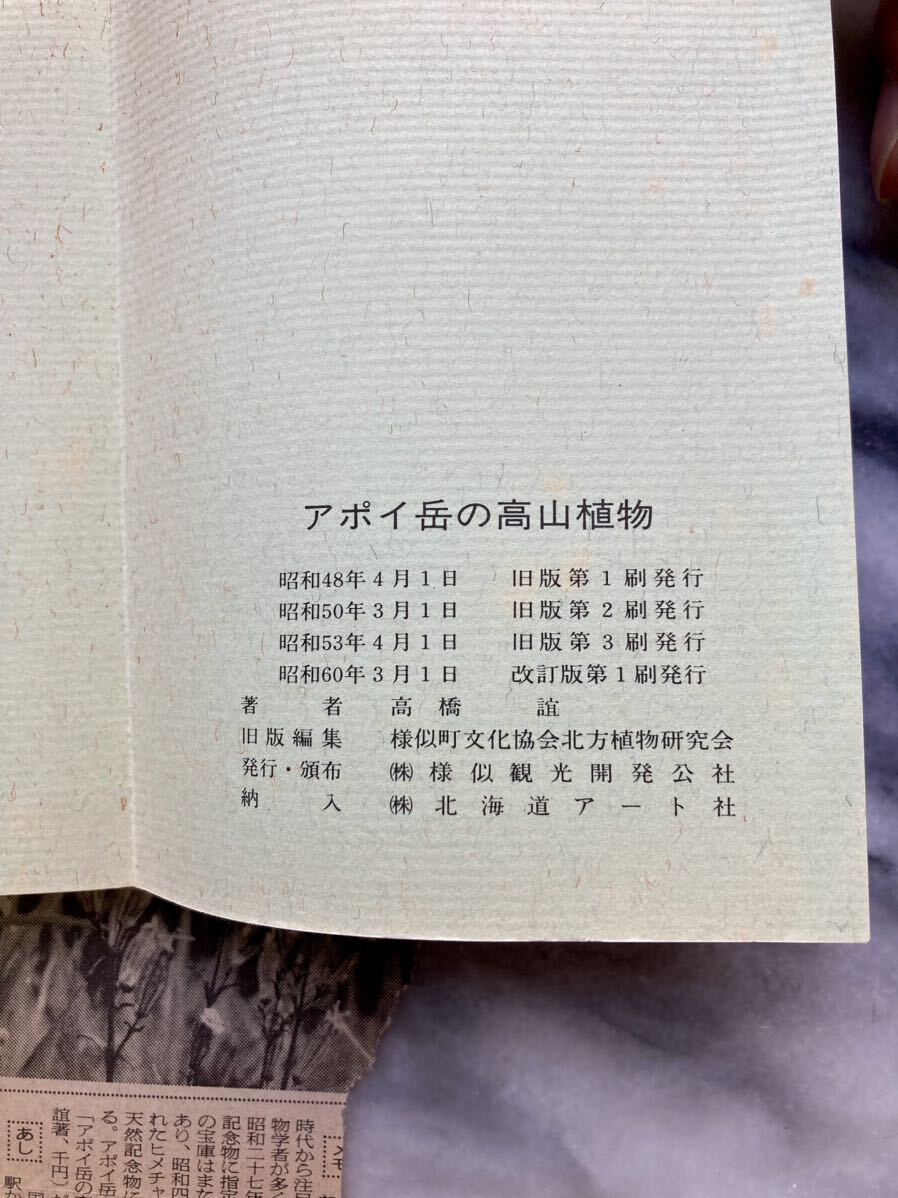 アポイ岳の高山植物
昭和48年4月1日 旧版第1刷発行
昭和50年3月1日 旧版第2刷発行
昭和53年4月1日 旧版第3刷発行
昭和60年3月1日 改訂版第1刷発行
著者 高橋誼
旧版編集 様似町文化協会北方植物研究会
発行・頒布 ㈱様似観光開発公社
納入 ㈱北海道アート社
メモ
時代から注目
物学者が多く
昭和二十七年
記念物に指定
の宝庫はまた
あり、昭和四
れたヒメチャ
天然記念物に
る。アポイ岳
「アポイ岳の
誼著、千円）
あし
駅か